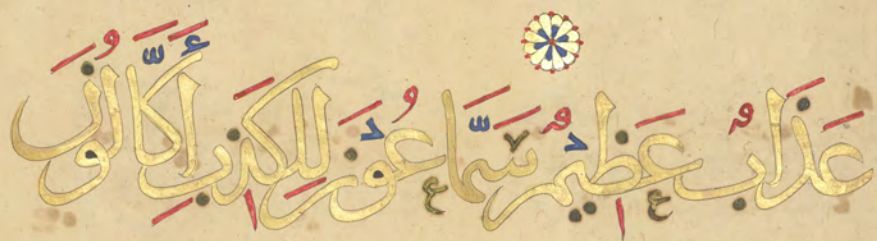 عَذَابٌ عَظِيمٌ سَمَّاعُونَ لِلْكَذِبِ أَكَّالُونَ